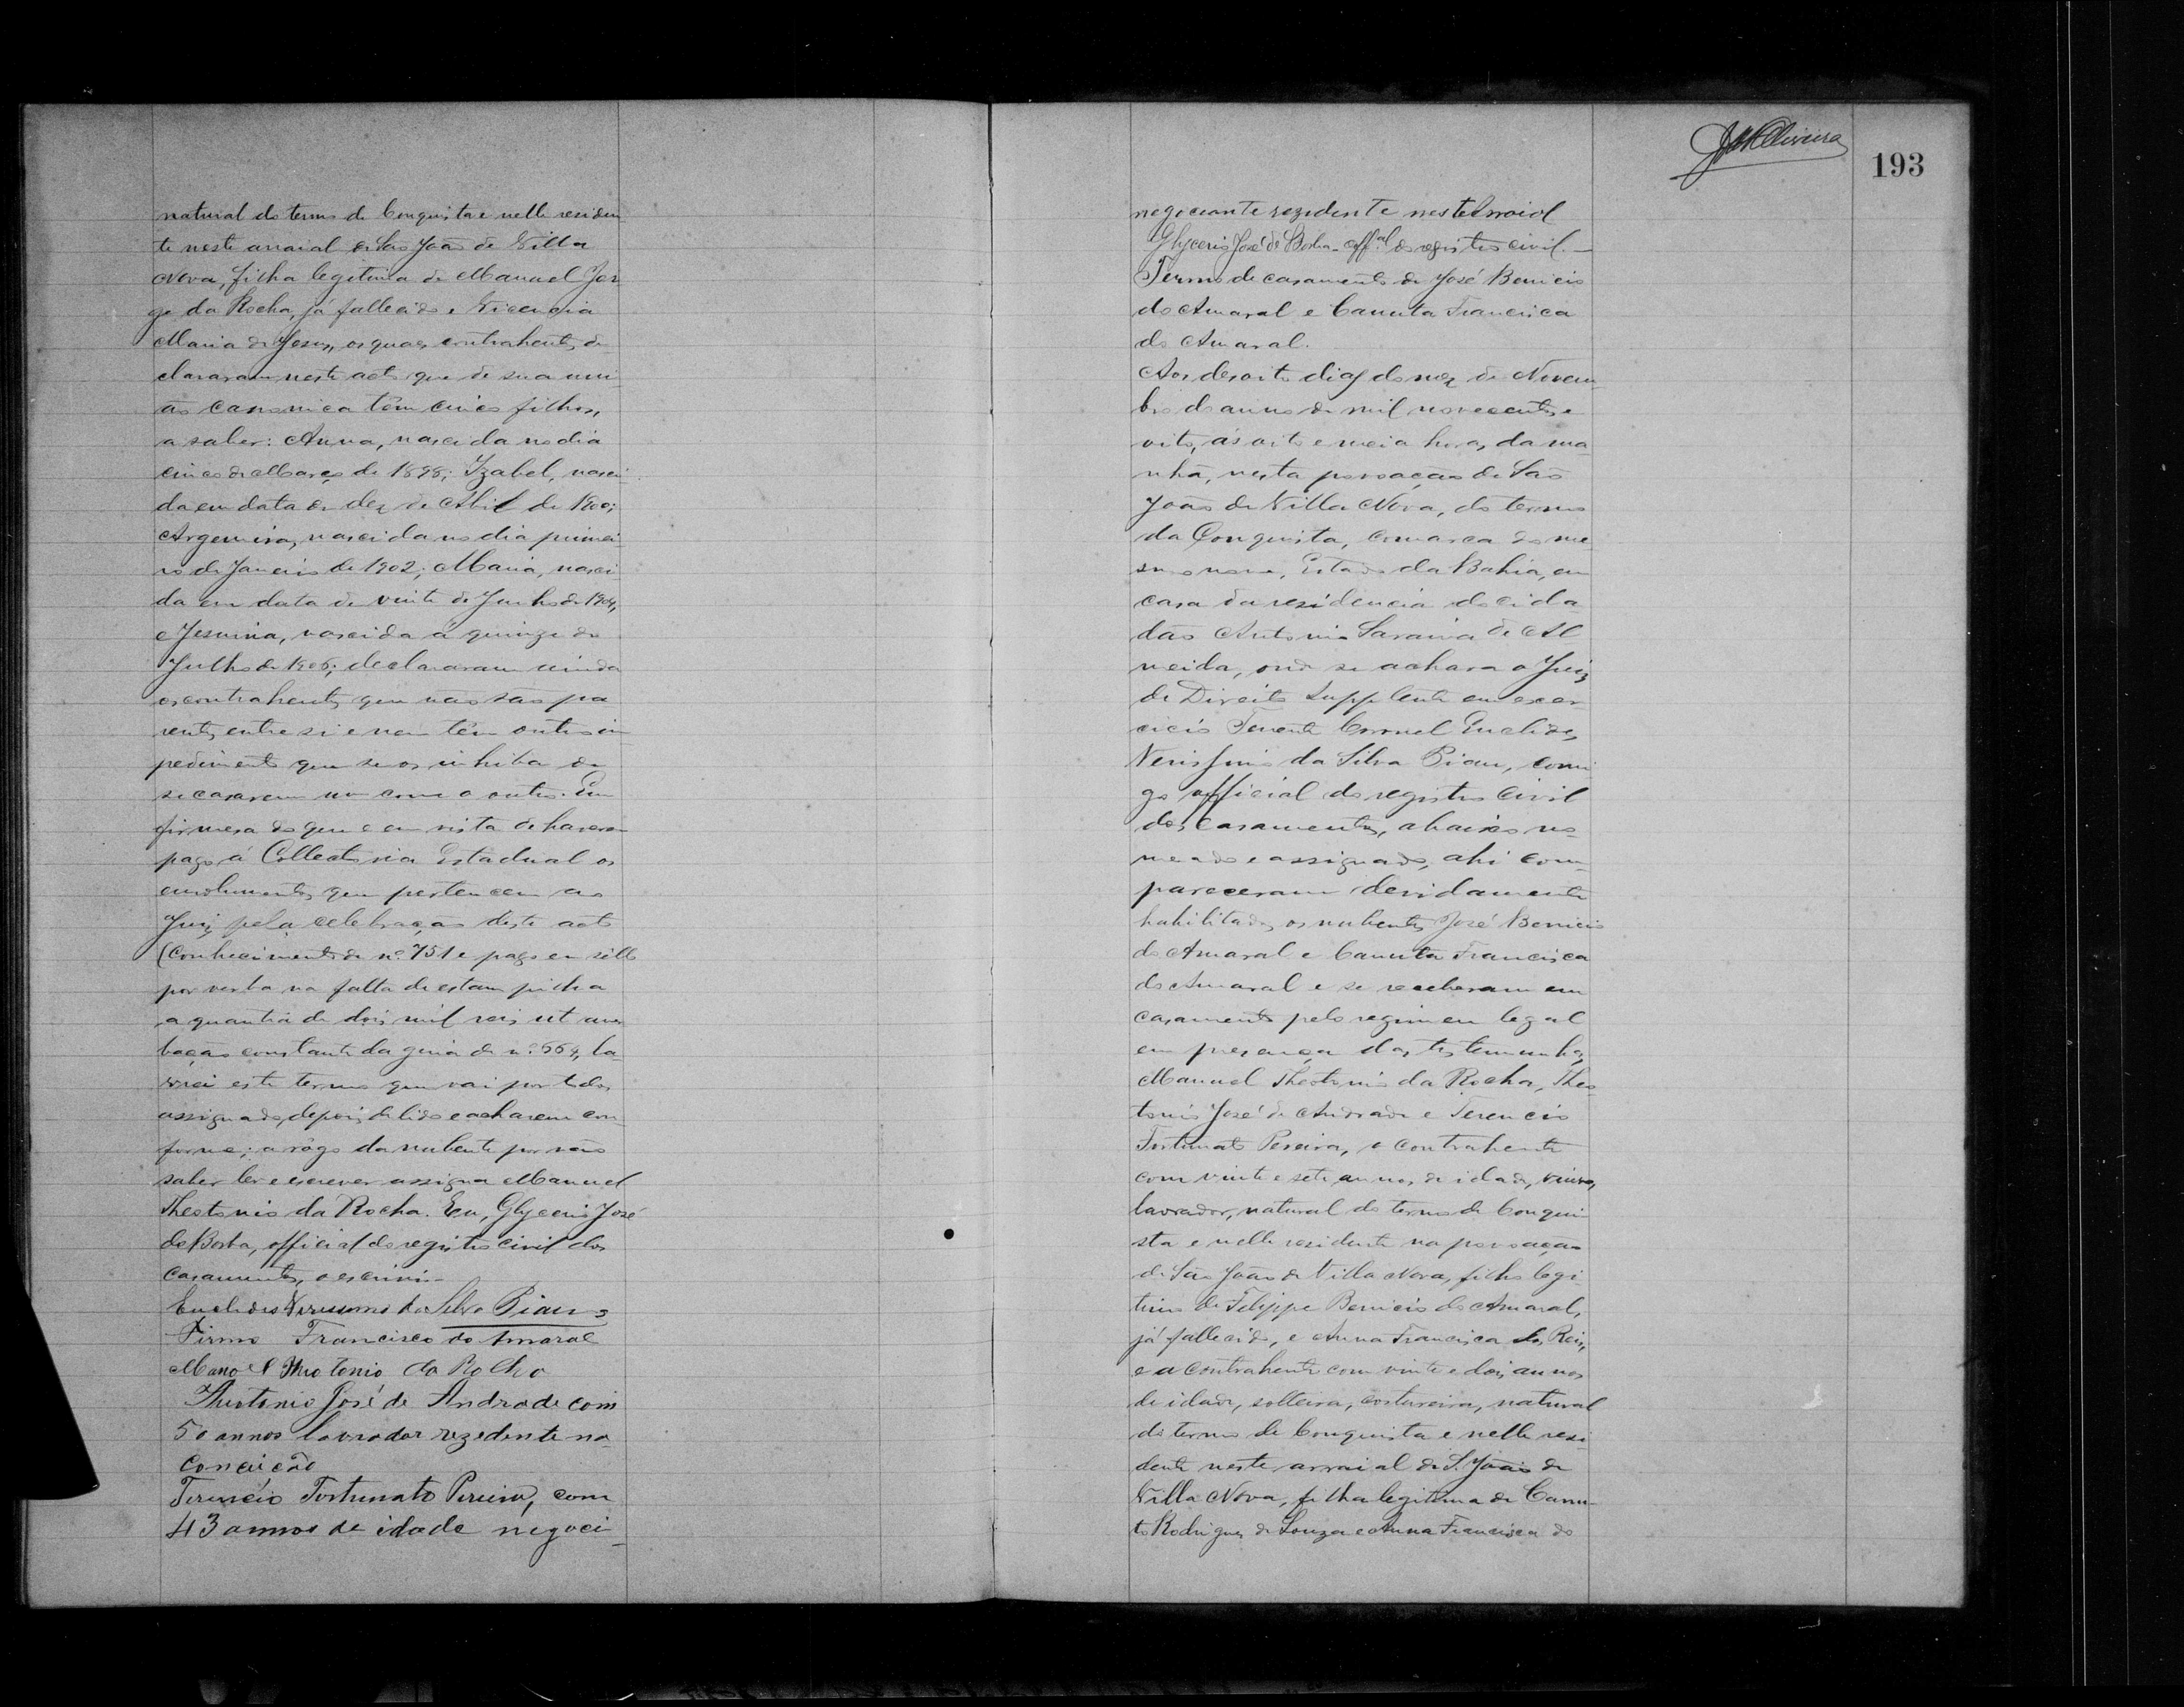 natural do termo de Conquista e nelle residen
te neste arraial de São João de Villa
Nova, filha legitima de Manuel Jor
ge da Rocha, já fallecido e Vicencia
Maria de Jesus, os quaes contrahentes de
clararam neste acto que de sua uni
ão canonica têm cinco filhos,
a saber: Anna, nascida no dia
cinco de Março de 1898; Izabel, nasci
da em data de dez de Abril de 1900;
Argemira, nascida no dia primei
ro de Janeiro de 1902; Maria, nasci
da em data de vinte de Junho de 1904,
e Jesuina, nascida á quinze de
Julho de 1906; declararam ainda
os contrahentes que não são pa
rentes entre si e nem têm outro im
pedimento que se os inhiba de
se casarem um com o outro. Em
firmesa do que e em vista de haverem
pago á Collectoria Estadual os
emolumentos que pertencem ao
Juiz pela celebração deste acto
(Conhecimento de nº 751 e pago em sello
por verba na falta de estampilha
a quantia de dois mil reis ut aver
bação constante da guia de nº 664, la
vrei este termo que vai por todos
assignado, depois de lido e acharem con
forme; a rôgo da nubente por não
saber ler e escrever assigna Manuel
Theotonio da Rocha. Eu, Glycerio José
de Borba, official do registro civil dos
casamentos, o escrivi.
Euclides Verissimo da Silva Piau
Firmo Francisco do Amaral
Manoel Theotonio da Rocha
Theotonio José de Andrade com
50 annos lavrador rezedente na
Conceição
Terencio Fortunato Pereira, com
43 annos de idade negoci-
JMOliveira
193
negociante rezedente neste Arraiol
Glycerio José de Borba - offal do registro civil. -
Termo de casamento de José Benicio
do Amaral e Canuta Francisca
do Amaral.
Aos desoito dias do mez de Novem
bro do anno de mil novecentos e
oito, ás oito e meia horas da ma
nhã, nesta povoação de São
João de Villa Nova, do termo
da Conquista, comarca do mes
mo nome, Estado da Bahia, em
casa da residencia do cida
dão Antonio Saraiva de Al
meida, onde se achava o Juiz
de Direito Supplente em exer
cicio Tenente Coronel Euclides
Verissimo da Silva Piau, comi
go official do registro civil
dos casamentos, abaixo no
meado e assignado, ahi com
pareceram devidamente
habilitados os nubentes José Benicio
do Amaral e Canuta Francisca
do Amaral e se receberam em
casamento pelo regimen legal
em presença das testemunhas
Manuel Theotonio da Rocha, Theo
tonio José de Andrade e Terencio
Fortunato Pereira, o contrahente
com vinte e sete annos de idade, viuvo,
lavrador, natural do termo de Conqui
sta e nelle residente na povoação
de São João de Villa Nova, filho legi
timo de Felippe Benicio do Amaral,
já fallecido, e Anna Francisca dos Reis,
e a contrahente com vinte e dois annos
de idade, solteira, costureira, natural
do termo de Conquista e nelle resi
dente neste arraial de S. João de
Villa Nova, filha legitima de Canu-
to Rodrigues de Souza e Anna Francisca do